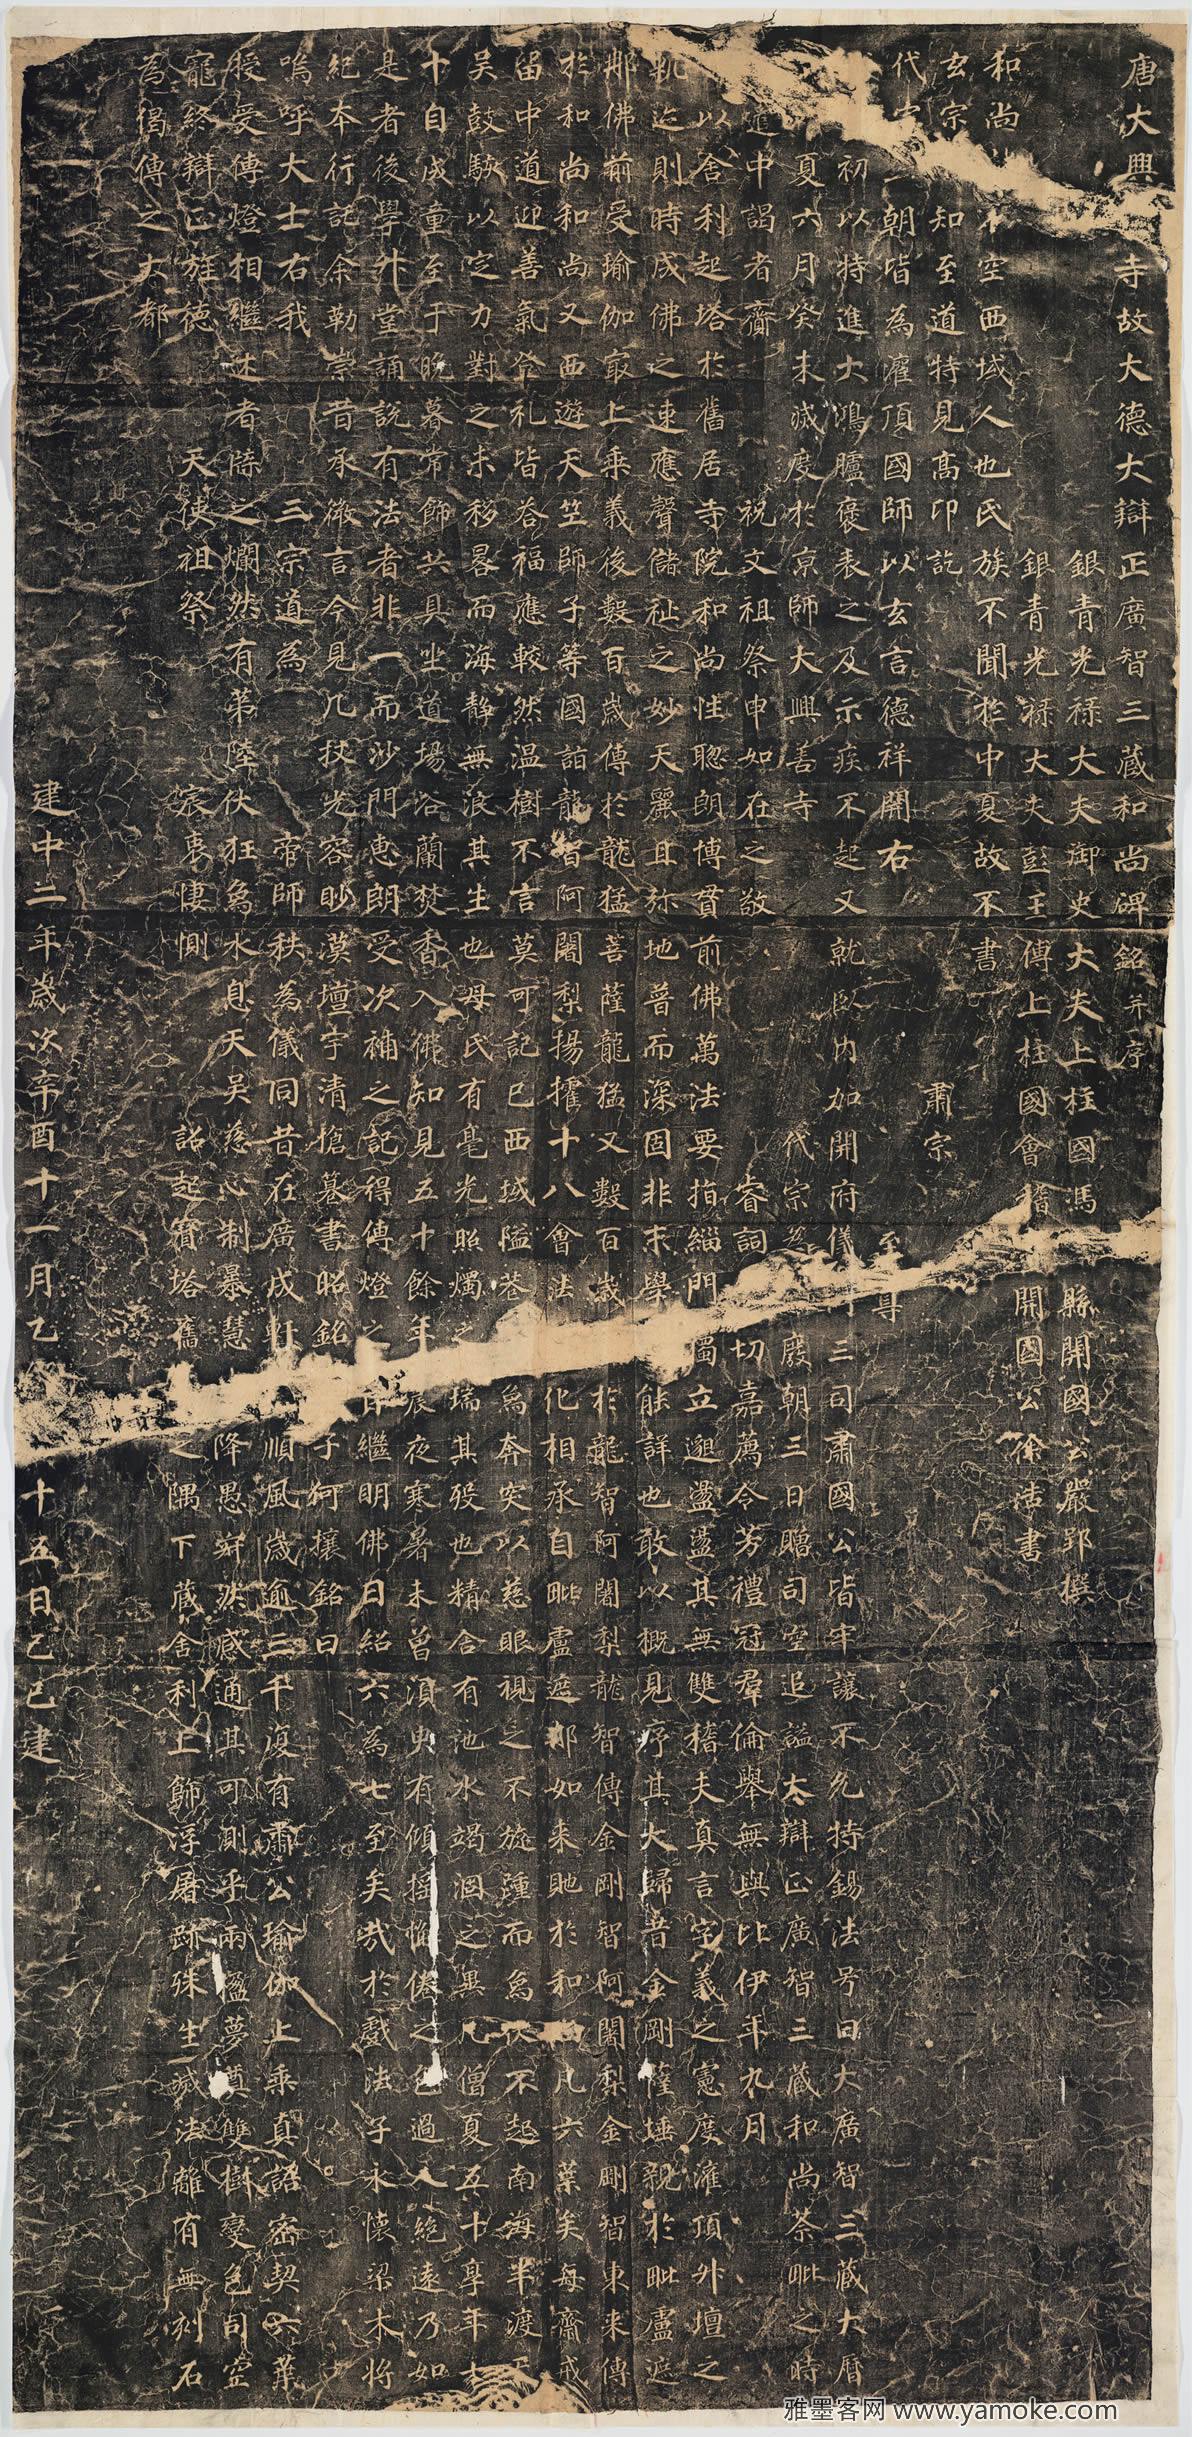 唐大興寺故大德大辯正廣智三藏和尚碑銘并序
銀青光祿大夫御史大夫上柱國馮縣開國公嚴郢撰
銀青光祿大夫彭王傅上柱國會稽開國公徐浩書
和尚不空西域人也氏族不聞於中夏故不書
玄宗知至道特見高卬訖 肅宗
代宗朝皆為灌頂國師以玄言德祥開右 至尊
初以特進大鴻臚褒表之及示疾不起又就臥內加開府儀三司肅國公皆牢讓不允特錫法号曰大廣智三藏大曆
夏六月癸未滅度於京師大興善寺 代宗為廢朝三日贈司空追謚大辯正廣智三藏和尚荼毗之時
遣中謁者齎 祝文祖祭申如在之敬 睿詞切嘉薦令芳禮冠羣倫舉無與比伊年九月
以舍利起塔於舊居寺院和尚性聰朗博貫前佛萬法要指緇門獨立邈盪盪其無雙稽夫真言字義之憲度灌頂升壇之
軌迹則時成佛之速應聲儲祉之妙天麗且弥地普而深固非末學能詳也敢以概見序其大歸昔金剛薩埵親於毗盧遮
那佛前受瑜伽最上乘義後數百歲傳於龍猛菩薩龍猛又數百歲於龍智阿闍梨龍智傳金剛智阿闍梨金剛智東来傳
於和尚和尚又西遊天竺師子等國詣龍智阿闍梨揚攉十八會法化相承自毗盧遮那如来貤於和尚凡六葉矣每齋戒
留中道迎善氣登礼皆答福應較然温樹不言莫可記已西域隘巷奔突以慈眼視之不旋踵而伏不起南海半渡天
吳鼓駭以定力對之未移晷而海靜無浪其生也母氏有毫光照燭之瑞其歿也精舍有池水竭涸之異凡僧夏五十享年七
十自成童至于晚暮常飾共具坐道場浴蘭焚香入佛知見五十餘年晨夜寒暑未曾須臾有傾搖懈倦之色過人絕遠乃如
是者後學升堂誦說有法者非一而沙門惠朗受次補之記得傳燈之旨繼明佛日紹六為七至矣哉於戲法子永懷梁木將
紀本行託余勒崇昔承微言今見几杖光容眇漠壇宇清愴篹書昭銘小子何攘銘曰
嗚呼大士右我 三宗道為 帝師秩為儀同昔在廣成軒順風歲逾三千復有肅公瑜伽上乘真語密契六葉
授受傳燈相繼述者牒之爛然有第陸伏狂象水息天吳慈心制暴慧降愚寂然感通其可測乎兩楹夢奠雙樹變色司空
寵終辯正旌德 天使祖祭 宸衷悽惻 詔起寶塔舊之隅下藏舍利上飾浮屠跡殊生滅法離有無刻石
為偈傳之大都
建中二年歲次辛酉十一月乙十五日己巳建
雅墨客网 www.yamoke.com